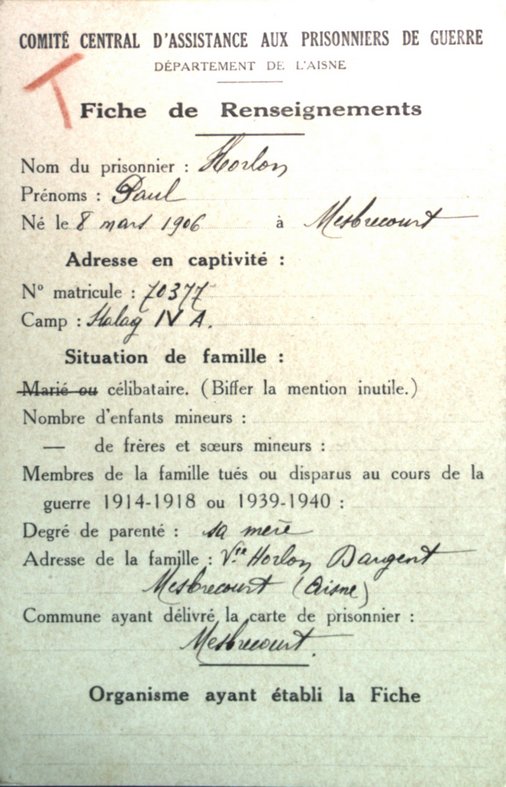 COMITÉ CENTRAL D'ASSISTANCE AUX PRISONNIERS DE GUERRE
DÉPARTEMENT DE L'AISNE
T
Fiche de Renseignements
Nom du prisonnier : Horlon
Prénoms : Paul
Né le 8 mars 1906 à Mesbrecourt
Adresse en captivité :
N° matricule : 70377
Camp : Stalag IV A.
Situation de famille :
Marié ou célibataire. (Biffer la mention inutile.)
Nombre d'enfants mineurs :
— de frères et sœurs mineurs :
Membres de la famille tués ou disparus au cours de la
guerre 1914-1918 ou 1939-1940 :
Degré de parenté : sa mère
Adresse de la famille : Vve Horlon Dargent
Mesbrecourt (Aisne)
Commune ayant délivré la carte de prisonnier :
Mesbrecourt.
Organisme ayant établi la Fiche